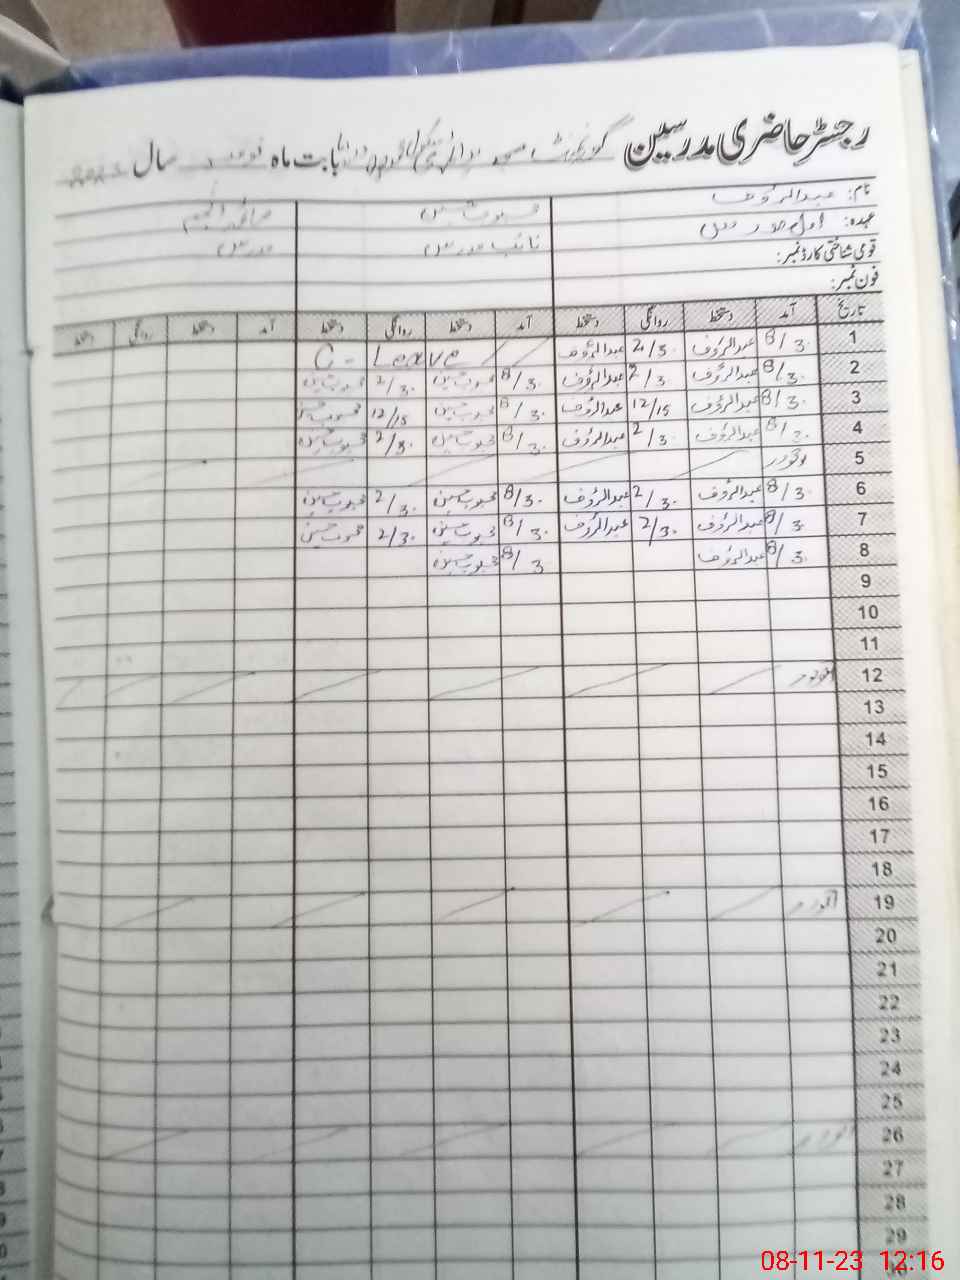 رجسٹر حاضری مدرسین گورنمنٹ مسجد پرائمری سکول بابت ماہ نومبر سال
نام: عبدالرؤف محبوب حسین
عہدہ: اول مدرس نائب مدرس مدرس
قومی شناختی کارڈ نمبر:
فون نمبر:
تاریخ آمد دستخط روانگی دستخط آمد دستخط روانگی دستخط آمد دستخط روانگی دستخط
1 8/30 عبدالرؤف 2/30 عبدالرؤف C - Leave
2 8/30 عبدالرؤف 2/30 عبدالرؤف 8/30 محبوب حسین 2/30 محبوب حسین
3 8/30 عبدالرؤف 12/15 عبدالرؤف 8/30 محبوب حسین 12/15 محبوب حسین
4 8/30 عبدالرؤف 2/30 عبدالرؤف 8/30 محبوب حسین 2/30 محبوب حسین
5 اتوار
6 8/30 عبدالرؤف 2/30 عبدالرؤف 8/30 محبوب حسین 2/30 محبوب حسین
7 8/30 عبدالرؤف 2/30 عبدالرؤف 8/30 محبوب حسین 2/30 محبوب حسین
8 8/30 عبدالرؤف 8/3 محبوب حسین
9
10
11
12 اتوار
13
14
15
16
17
18
19 اتوار
20
21
22
23
24
25
26 اتوار
27
28
29
30
08-11-23 12:16